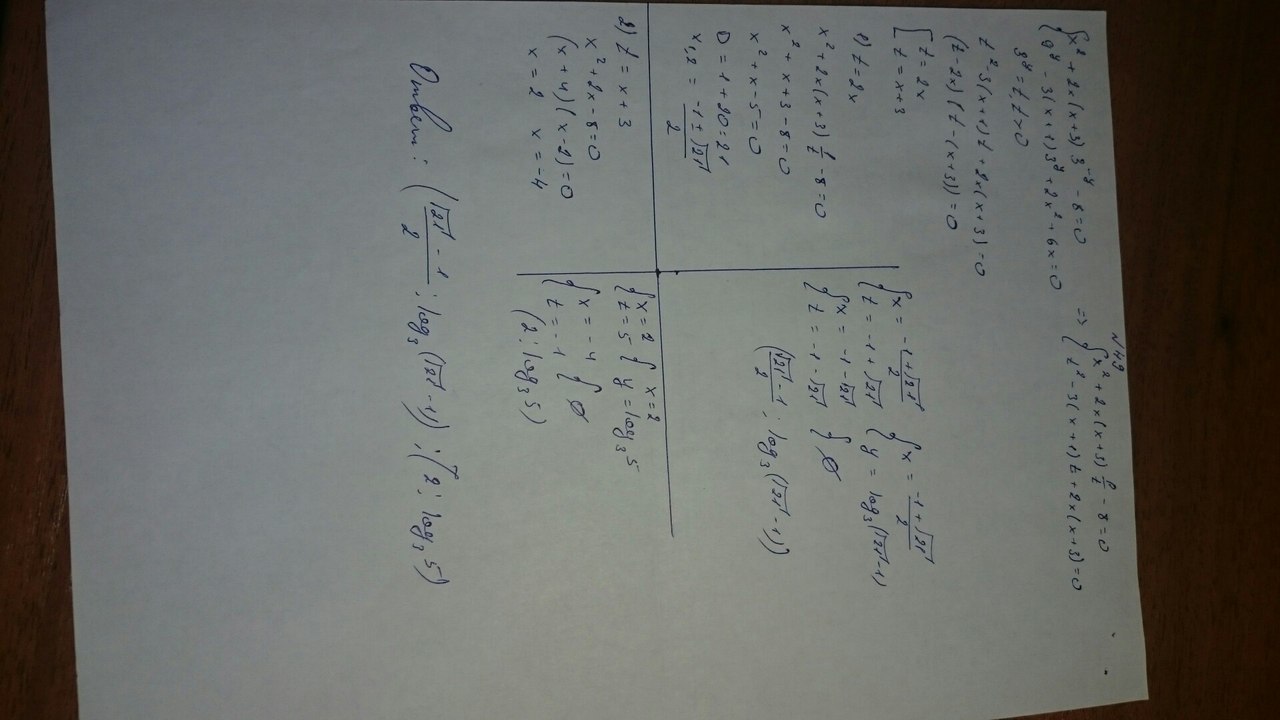 N 149
{ x² + 2x(x+3) 3⁻ʸ - 8 = 0
{ 9ʸ - 3(x+1)3ʸ + 2x² + 6x = 0
=> { x² + 2x(x+3) 1/t - 8 = 0
{ t² - 3(x+1)t + 2x(x+3) = 0
3ʸ = t, t > 0
t² - 3(x+1)t + 2x(x+3) = 0
(t - 2x)(t - (x+3)) = 0
[ t = 2x
[ t = x+3
1) t = 2x
x² + 2x(x+3) 1/t - 8 = 0
x² + x + 3 - 8 = 0
x² + x - 5 = 0
D = 1 + 20 = 21
x₁,₂ = (-1 ± √21)/2
{ x = (-1 + √21)/2 { x = (-1 + √21)/2
{ t = -1 + √21 { y = log₃(√21 - 1)
{ x = -1 - √21 { ∅
{ t = -1 - √21
((√21 - 1)/2 ; log₃(√21 - 1))
2) t = x + 3
x² + 2x - 8 = 0
(x + 4)(x - 2) = 0
x = 2 x = -4
{ x = 2 { x = 2
{ t = 5 { y = log₃ 5
{ x = -4 { ∅
{ t = -1
(2 ; log₃ 5)
Ответ: ((√21 - 1)/2 ; log₃(√21 - 1)) ; (2 ; log₃ 5)